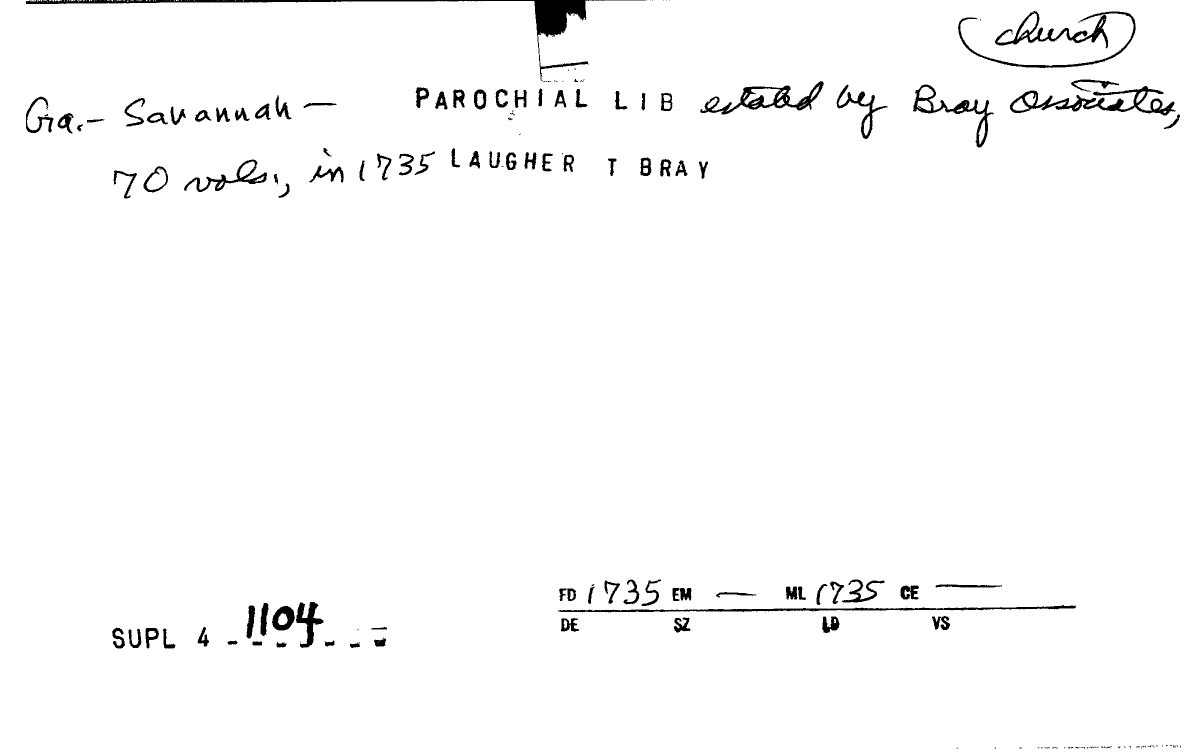 church
Ga. - Savannah — PAROCHIAL LIB estabd by Bray Associates,
70 vols., in 1735 LAUGHER T BRAY
FD 1735 EM — ML 1735 CE —
SUPL 4 - 1104 - - -
DE SZ LD VS